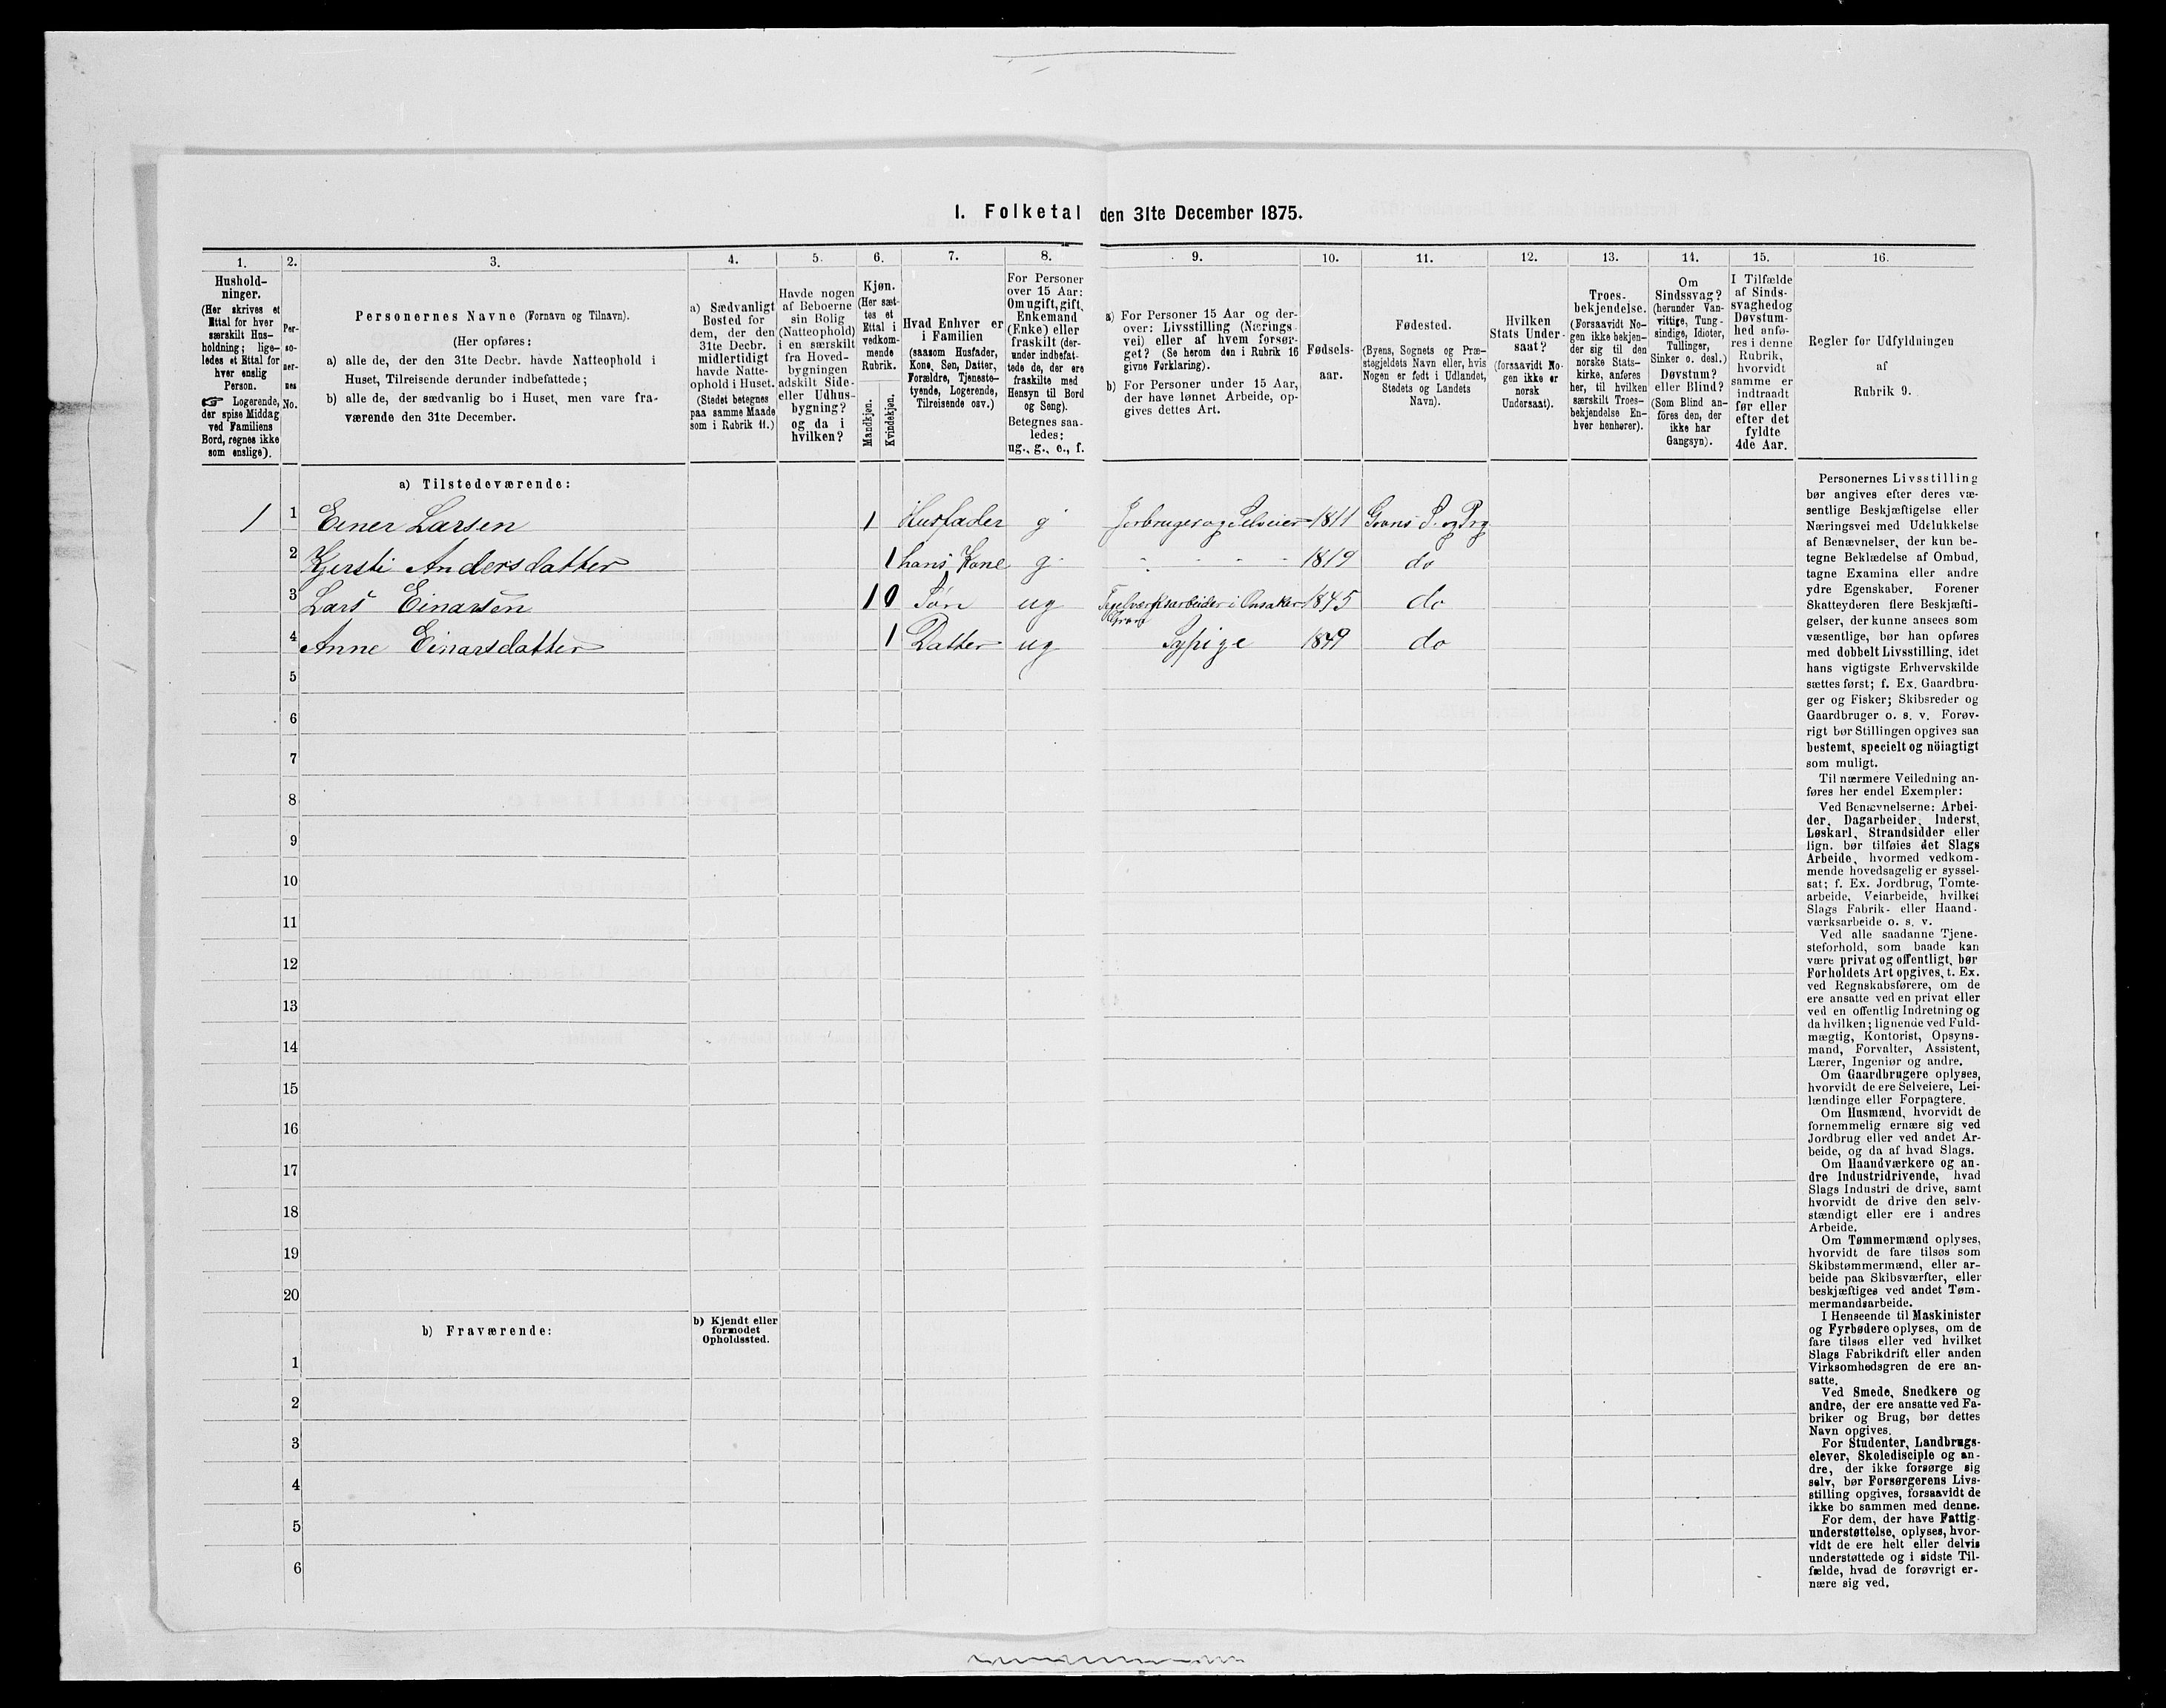 I. Folketal den 31te December 1875.
1. 2. 3. 4. 5. 6. 7. 8. 9. 10. 11. 12. 13. 14. 15. 16.
Hushold-
ninger.
(Her skrives et
Ettal for hver
særskilt Hus-
holdning; lige-
ledes et Ettal for
hver enslig
Person.
☞ Logerende,
der spise Middag
ved Familiens
Bord, regnes ikke
som enslige).
Per-
so-
ner-
nes
No.
Personernes Navne (Fornavn og Tilnavn).
(Her opføres:
a) alle de, der den 31te Decbr. havde Natteophold i
Huset, Tilreisende derunder indbefattede;
b) alle de, der sædvanlig bo i Huset, men vare fra-
værende den 31te December.
a) Sædvanligt
Bosted for
dem, der den
31te Decbr.
midlertidigt
havde Natte-
ophold i Huset.
(Stedet betegnes
paa samme Maade
som i Rubrik 11.)
Havde nogen
af Beboerne
sin Bolig
(Natteophold)
i en særskilt
fra Hoved-
bygningen
adskilt Side-
eller Udhus-
bygning?
og da i
hvilken?
Kjøn.
(Her sæt-
tes et
Ettal i
vedkom-
mende
Rubrik.
Mandkjøn.
Kvindekjøn.
Hvad Enhver er
i Familien
(saasom Husfader,
Kone, Søn, Datter,
Forældre, Tjeneste-
tyende, Logerende,
Tilreisende osv.)
For Personer
over 15 Aar:
Om ugift, gift,
Enkemand
(Enke) eller
fraskilt (der-
under indbefat-
tede de, der ere
fraskilte med
Hensyn til Bord
og Seng).
Betegnes saa-
ledes:
ug., g., e., f.
a) For Personer 15 Aar og der-
over: Livsstilling (Nærings-
vei) eller af hvem forsør-
get? (Se herom den i Rubrik 16
givne Forklaring).
b) For Personer under 15 Aar,
der have lønnet Arbeide, op-
gives dettes Art.
Fødsels-
aar.
Fødested.
(Byens, Sognets og Præ-
stegjeldets Navn eller, hvis
Nogen er født i Udlandet,
Stedets og Landets
Navn).
Hvilken
Stats Under-
saat?
(forsaavidt No-
gen ikke er
norsk
Undersaat).
Troes-
bekjendelse.
(Forsaavidt No-
gen ikke bekjen-
der sig til den
norske Stats-
kirke, anføres
her, til hvilken
særskilt Troes-
bekjendelse En-
hver henhører).
Om
Sindssvag?
(herunder Van-
vittige, Tung-
sindige, Idioter,
Tullinger,
Sinker o. desl.)
Døvstum?
eller Blind?
(Som Blind an-
føres den, der
ikke har
Gangsyn).
I Tilfælde
af Sinds-
svaghed og
Døvstum-
hed anfø-
res i denne
Rubrik,
hvorvidt
samme er
indtraadt
før eller
efter det
fyldte
4de Aar.
Regler for Udfyldningen
af
Rubrik 9.
a) Tilstedeværende:
1 1 Einer Larsen 1 Husfader g Jorbruger og Selveier 1811 Grans S. og Prg
2 Kjersti Andersdatter 1 hans Kone g - - - - 1819 do
3 Lars Einarsen 1 0 Søn ug Tegelværksarbeider i Onsaker 1845 do
Gran
4 Anne Einarsdatter 1 Datter ug Sypige 1849 do
5
6
7
8
9
10
11
12
13
14
15
16
17
18
19
20
b) Fraværende:
b) Kjendt eller
formodet
Opholdssted.
1
2
3
4
5
6
Personernes Livsstilling
bør angives efter deres væ-
sentlige Beskjæftigelse eller
Næringsvei med Udelukkelse
af Benævnelser, der kun be-
tegne Beklædelse af Ombud,
tagne Examina eller andre
ydre Egenskaber. Forener
Skatteyderen flere Beskjæfti-
gelser, der kunne ansees som
væsentlige, bør han opføres
med dobbelt Livsstilling, idet
hans vigtigste Erhvervskilde
sættes først; f. Ex. Gaardbru-
ger og Fisker; Skibsreder og
Gaardbruger o. s. v. Forøv-
rigt bør Stillingen opgives saa
bestemt, specielt og nöiagtigt
som muligt.
Til nærmere Veiledning an-
føres her endel Exempler:
Ved Benævnelserne: Arbei-
der, Dagarbeider, Inderst,
Løskarl, Strandsidder eller
lign. bør tilføies det Slags
Arbeide, hvormed vedkom-
mende hovedsagelig er syssel-
sat; f. Ex. Jordbrug, Tomte-
arbeide, Veiarbeide, hvilket
Slags Fabrik- eller Haand-
værksarbeide o. s. v.
Ved alle saadanne Tjene-
steforhold, som baade kan
være privat og offentligt, bør
Forholdets Art opgives, t. Ex.
ved Regnskabsførere, om de
ere ansatte ved en privat eller
ved en offentlig Indretning og
da hvilken; lignende ved Fuld-
mægtig, Kontorist, Opsyns-
mand, Forvalter, Assistent,
Lærer, Ingeniør og andre.
Om Gaardbrugere oplyses,
hvorvidt de ere Selveiere, Lei-
lændinge eller Forpagtere.
Om Husmænd, hvorvidt de
fornemmelig ernære sig ved
Jordbrug eller ved andet Ar-
beide, og da af hvad Slags.
Om Haandværkere og an-
dre Industridrivende, hvad
Slags Industri de drive, samt
hvorvidt de drive den selv-
stændigt eller ere i andres
Arbeide.
Om Tømmermænd oplyses,
hvorvidt de fare tilsøs som
Skibstømmermænd, eller ar-
beide paa Skibsværfter, eller
beskjæftiges ved andet Tøm-
mermandsarbeide.
I Henseende til Maskinister
og Fyrbødere oplyses, om de
fare tilsøs eller ved hvilket
Slags Fabrikdrift eller anden
Virksomhedsgren de ere an-
satte.
Ved Smede, Snedkere og
andre, der ere ansatte ved Fa-
briker og Brug, bør dettes
Navn opgives.
For Studenter, Landbrugs-
elever, Skoledisciple og an-
dre, der ikke forsørge sig
selv, bør Forsørgerens Livs-
stilling opgives, forsaavidt de
ikke bo sammen med denne.
For dem, der have Fattig-
understøttelse, oplyses, hvor-
vidt de ere helt eller delvis
understøttede og i sidste Til-
fælde, hvad de forøvrigt er-
nære sig ved.